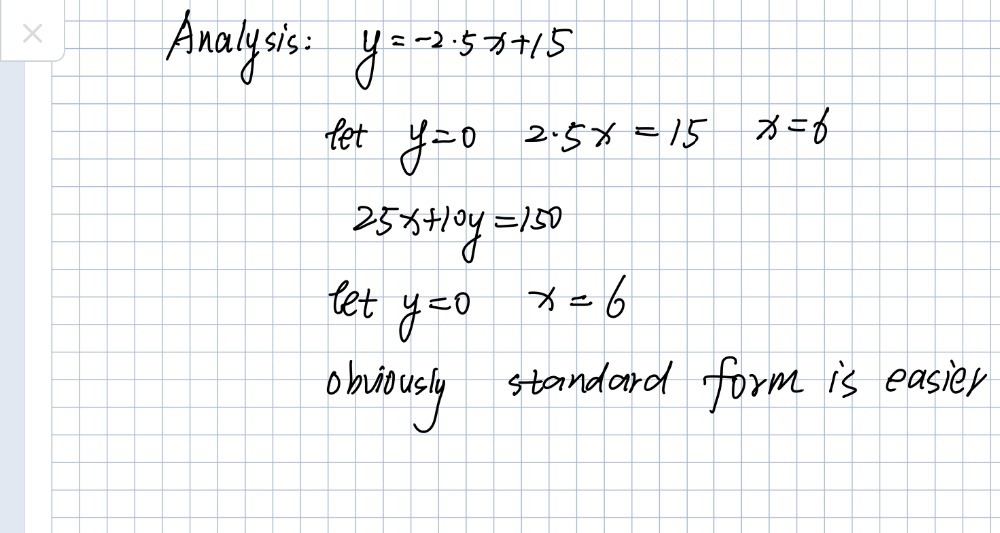 Analysis: y=-2.5x+15
let y=0 2.5x=15 x=6
25x+10y=150
let y=0 x=6
obviously standard form is easier